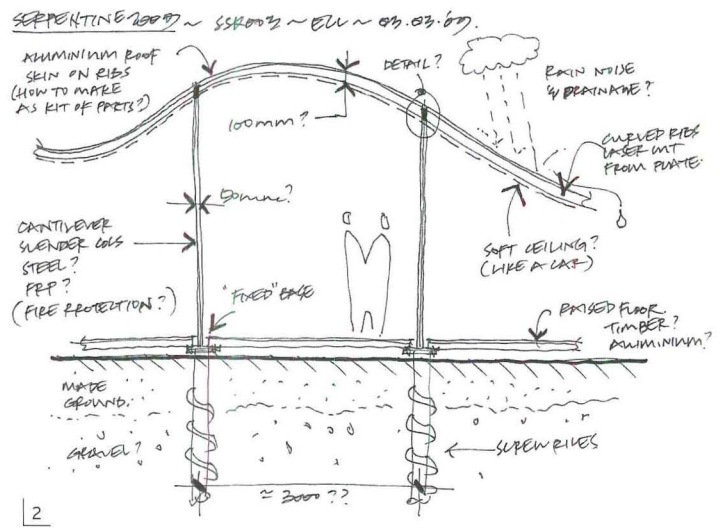 SERPENTINE 2009 ~ SSK002 ~ ELL ~ 03.03.09.
ALUMINIUM ROOF
SKIN ON RIBS
(HOW TO MAKE
AS KIT OF PARTS?)
DETAIL?
RAIN NOISE
& DRAINAGE?
100mm?
CURVED RIBS
LASER CUT
FROM PLATE.
50mm?
CANTILEVER
SLENDER COLS
STEEL?
FRP?
(FIRE PROTECTION?)
SOFT CEILING?
(LIKE A CAR)
"FIXED" BASE
RAISED FLOOR.
TIMBER?
ALUMINIUM?
MADE
GROUND.
GRAVEL?
SCREW PILES
≈ 3000 ??
2